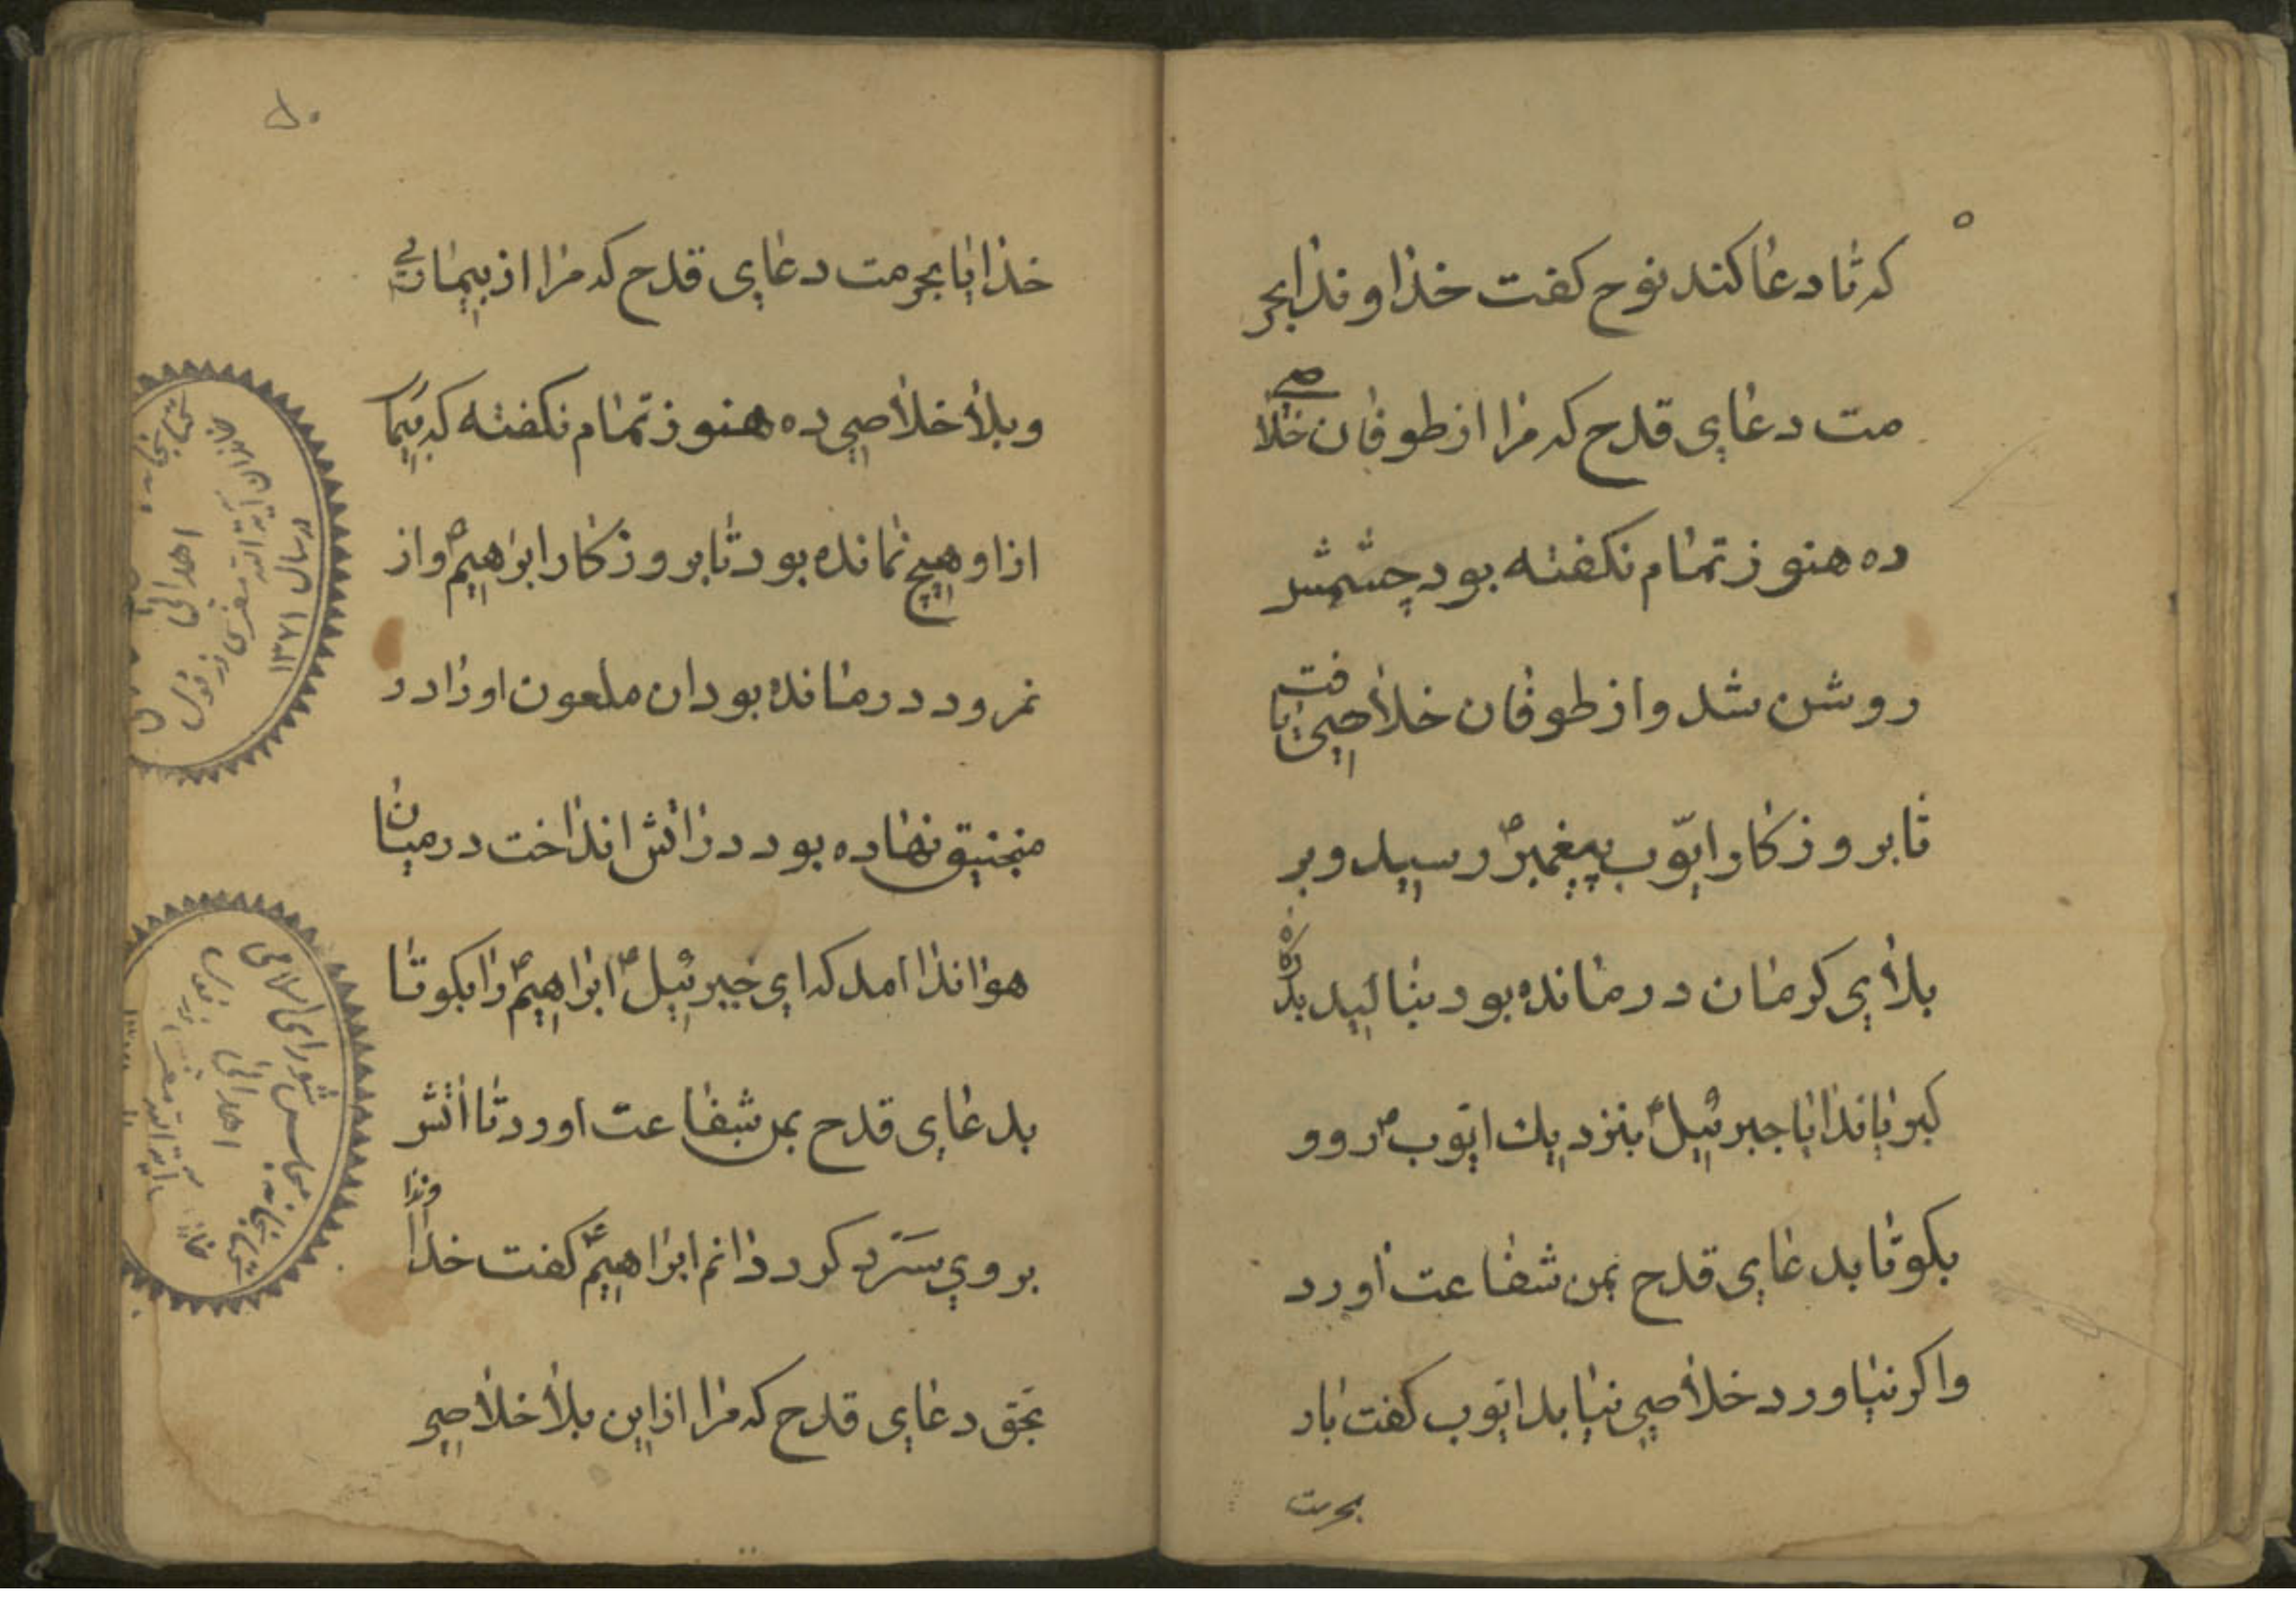 که تا دعا کند نوح کفت خداوندا بحر
مت دعای قدح که مرا از طوفان خلاصی
ده هنوز تمام نکفته بود چشمش
روشن شد و از طوفان خلاصی یافت
تا بروزکار ایّوب پیغمبر ص رسید و بر
بلای کرمان درمانده بود بنالید بدرکاه
کبریا ندا یا جبرئیل ؑ بنزدیك ایوب ؑ رو و
بکو تا بدعای قدح بمن شفاعت آورد
و اکر نیاورد خلاصی نیابد ایوب کفت بار
بحرمت
۵۰
خدایا بحرمت دعای قدح که مرا از بیماری
و بلا خلاصی ده هنوز تمام نکفته که بیما
از او هیچ نمانده بود تا بروزکار ابراهیم ؑ و از
نمرود درمانده بود ان ملعون اورا در
منجنیق نهاده بود در اتش انداخت در میان
هوا ندا امد که ای جبرئیل ؑ ابراهیم ؑ را بکو تا
بدعای قدح بمن شفاعت اورد تا اتش
بروی سَرد کردانم ابراهیم ؑ کفت خداوندا
بحق دعای قدح که مرا از این بلا خلاصی
اهدائی
در سال ۱۳۷۱
مجلس شورای اسلامی
اهدائی